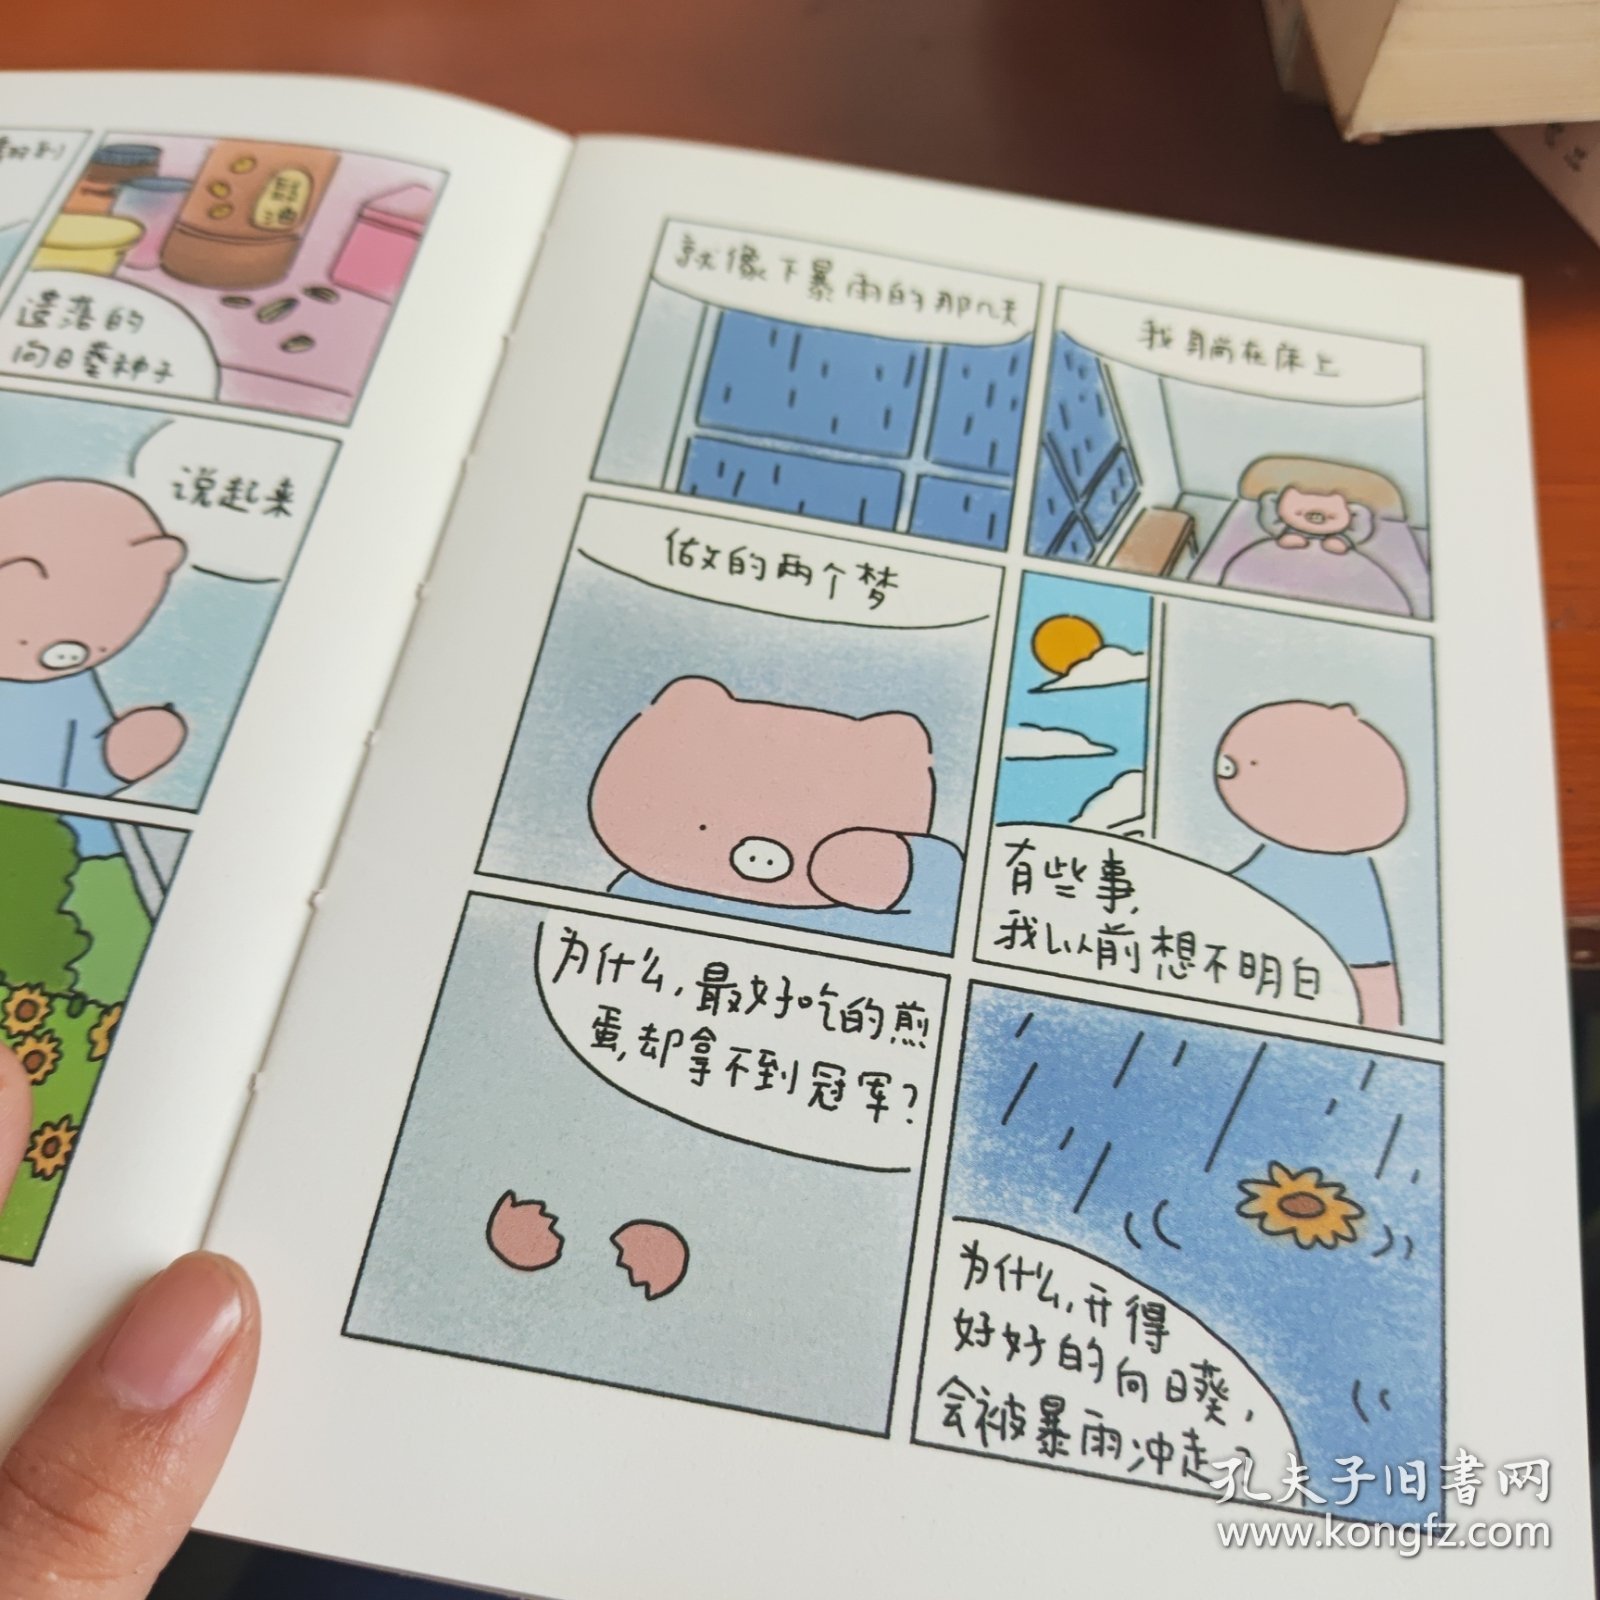 豉油
遗落的
向日葵种子
说起来
就像下暴雨的那几天
我躺在床上
做的两个梦
有些事,
我以前想不明白
为什么,最好吃的煎
蛋,却拿不到冠军?
为什么,开得
好好的向日葵,
会被暴雨冲走?
孔夫子旧书网
www.kongfz.com